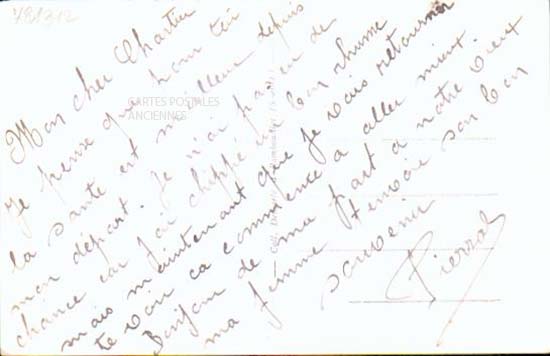 481312
Mon cher Chartier
Je pense que pour toi
la santé est meilleur depuis
mon départ. Je n'ai pas eu de
chance car j'ai chippé un bon rhume
mais maintenant que je vais retourner
te voir ca commence a aller mieux
Bonjour de ma part a notre vieux
ma femme son bon
souvenir
Pierral
CARTES POSTALES
ANCIENNES